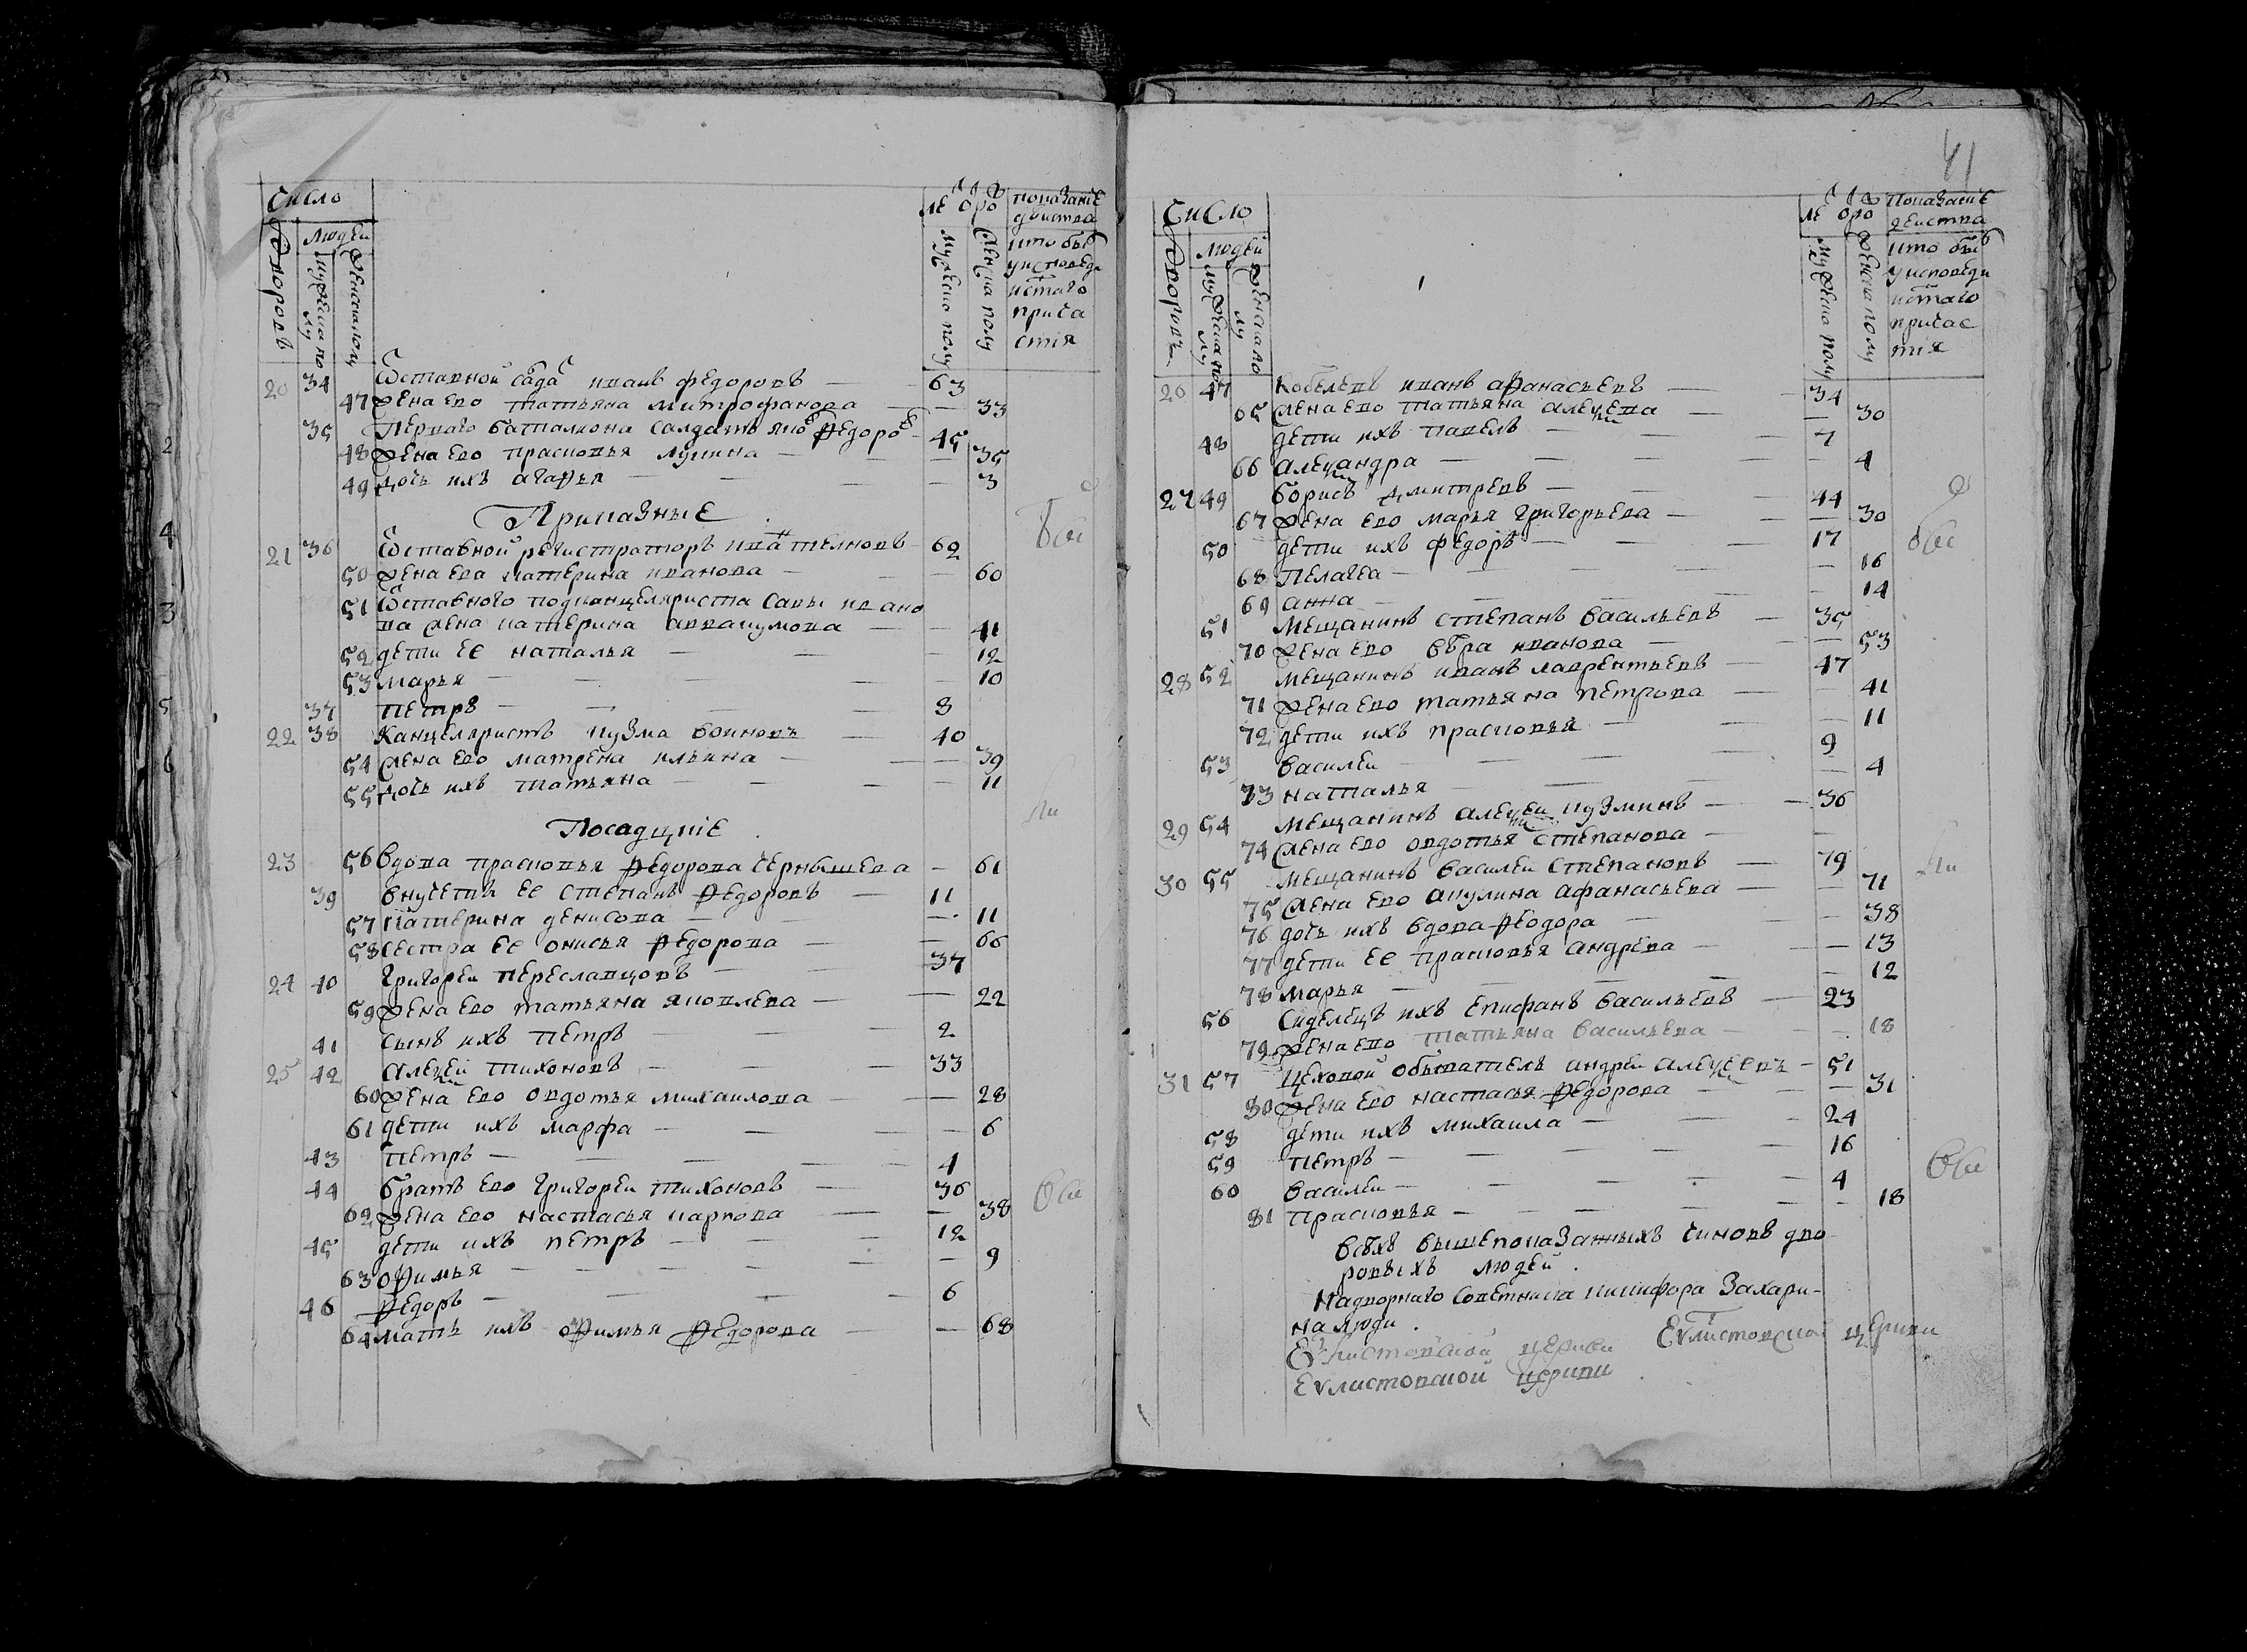 Число
людей
дворовъ
мужеска полу
женска полу
лѣ от ро
мужеска полу
женска полу
показание
действа
кто былъ
у исповеди
и стаго
прича
стия
20 34 Отставной салдат иванъ федоровъ — 63
47 жена ево татьяна митрофанова — — 33
35 Первого баталиона салдатъ яков федоров 45
48 жена ево прасковья лукина — — 35
49 дочь ихъ агафья — — — 3
Приказные
21 36 Отставной регистраторъ
62
50 жена ева катерина иванова — — 60
51 Отставного подканцеляриста савы ивано
ва жена катерина аввакумова — — 41
52 дети ее наталья — — — 12
53 марья — — — — 10
37 петръ — — — — 8
22 38 Канцеляристъ кузма воиновъ — 40
54 жена ево матрена ильина — — 39
55 дочь ихъ татьяна — — — 11
Посадцкие
23 56 вдова прасковья федорова чернышева — 61
39 внучетъ ее степанъ федоровъ — 11
57 катерина денисова — — 11
58 сестра ее онисья федорова — — 66
24 40 григореи переславцовъ — 37
59 жена ево татьяна яковлева — — 22
41 сынъ ихъ петръ — — 2
25 42 алексей тихоновъ — — 33
60 жена ево овдотья михаилова — — 28
61 дети ихъ марфа — — — 6
43 петръ — — — — 4
44 братъ ево григореи тихоновъ — 36
62 жена ево настасья карпова — — 38
45 дети ихъ петръ — — — 12
63 офимья — — — — 9
46 федоръ — — — — 6
64 мать ихъ офимья федорова — — 68
41
Число
людей
дворовъ
мужеска полу
женска полу
лѣ от ро
мужеска полу
женска полу
показание
действа
кто былъ
у исповеди
и стаго
причас
тия
26 47 Кобелевъ иванъ афанасьевъ — 34
65 жена ево татьяна алексеева — — 30
48 дети ихъ павелъ — — — 7
66 александра — — — — 4
27 49 борисъ дмитревъ — — 44
67 жена ево марья григорьева — — 30
50 дети ихъ федоръ — — — 17
68 пелагея — — — — 16
69 анна — — — — 14
51 мещанинъ степанъ васильевъ — 35
70 жена ево вѣра иванова — — 53
28 52 мещанинъ иванъ лаврентьевъ — 47
71 жена ево татьяна петрова — — 41
72 дети ихъ прасковья — — 11
53 василеи — — — 9
73 наталья — — — — 4
29 54 мещанинъ алексеи кузминъ — — 36
74 жена ево овдотья степанова — —
30 55 мещанинъ василеи степановъ — 79
75 жена ево акулина афанасьева — — 71
76 дочь ихъ вдова феодора — — 38
77 дети ее прасковья андрева — — 13
78 марья — — — — 12
56 сиделецъ ихъ епифанъ васильевъ — 23
79 жена ево татьяна васильева — — 18
31 57 цеховои обыватель андреи алексеевъ — 51
80 жена ево настасья федорова — — 31
58 дети ихъ михаила — — 24
59 петръ — — — — 16
60 василеи — — — — 4
81 прасковья — — — — 18
всѣхъ вышепоказанныхъ чиновъ дво
ровыхъ людей
надворнаго советника никифора захари-
на люди
Евплистовской церкви
Евплистовской церкви
Евплистовской церкви